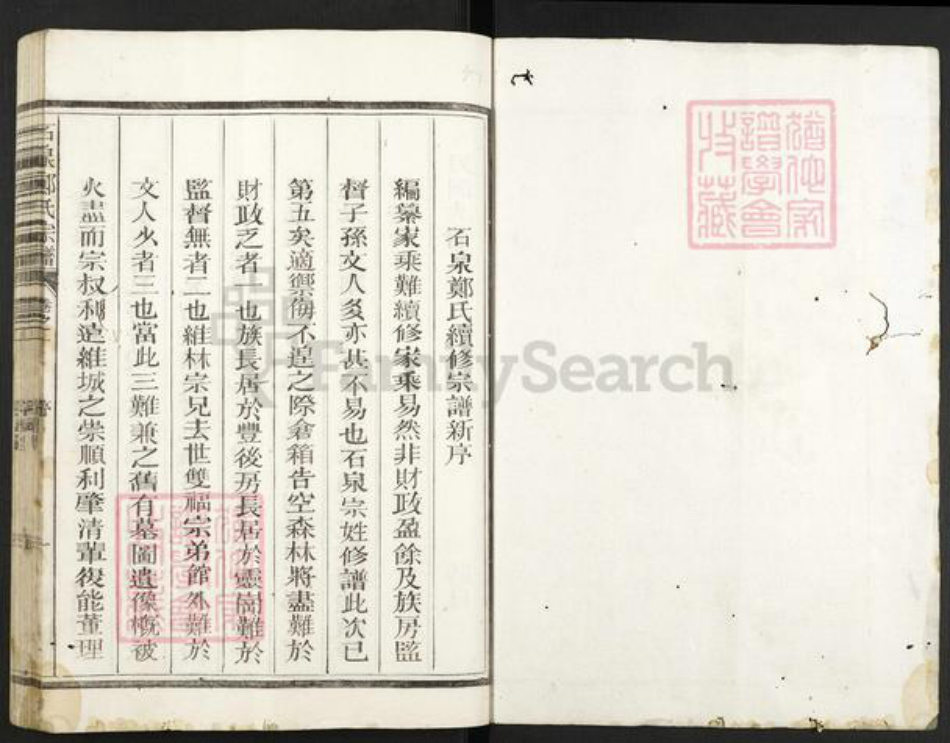 猶他家
譜學會
收藏
石泉鄭氏續修宗譜新序
編纂家乘難續修家乘易然非財政盈餘及族房監
督子孫文人多亦甚不易也石泉宗姓修譜此次已
第五矣適禦侮不遑之際倉箱告空森林將盡難於
財政乏者一也族長居於豐後房長居於靈崗難於
監督無者二也維林宗兄去世雙福宗弟館外難於
文人少者三也當此三難兼之舊有墓圖遺像概被
火盡而宗叔利遠維城之崇順利肇清輩復能董理
石泉鄭氏宗譜
FamilySearch